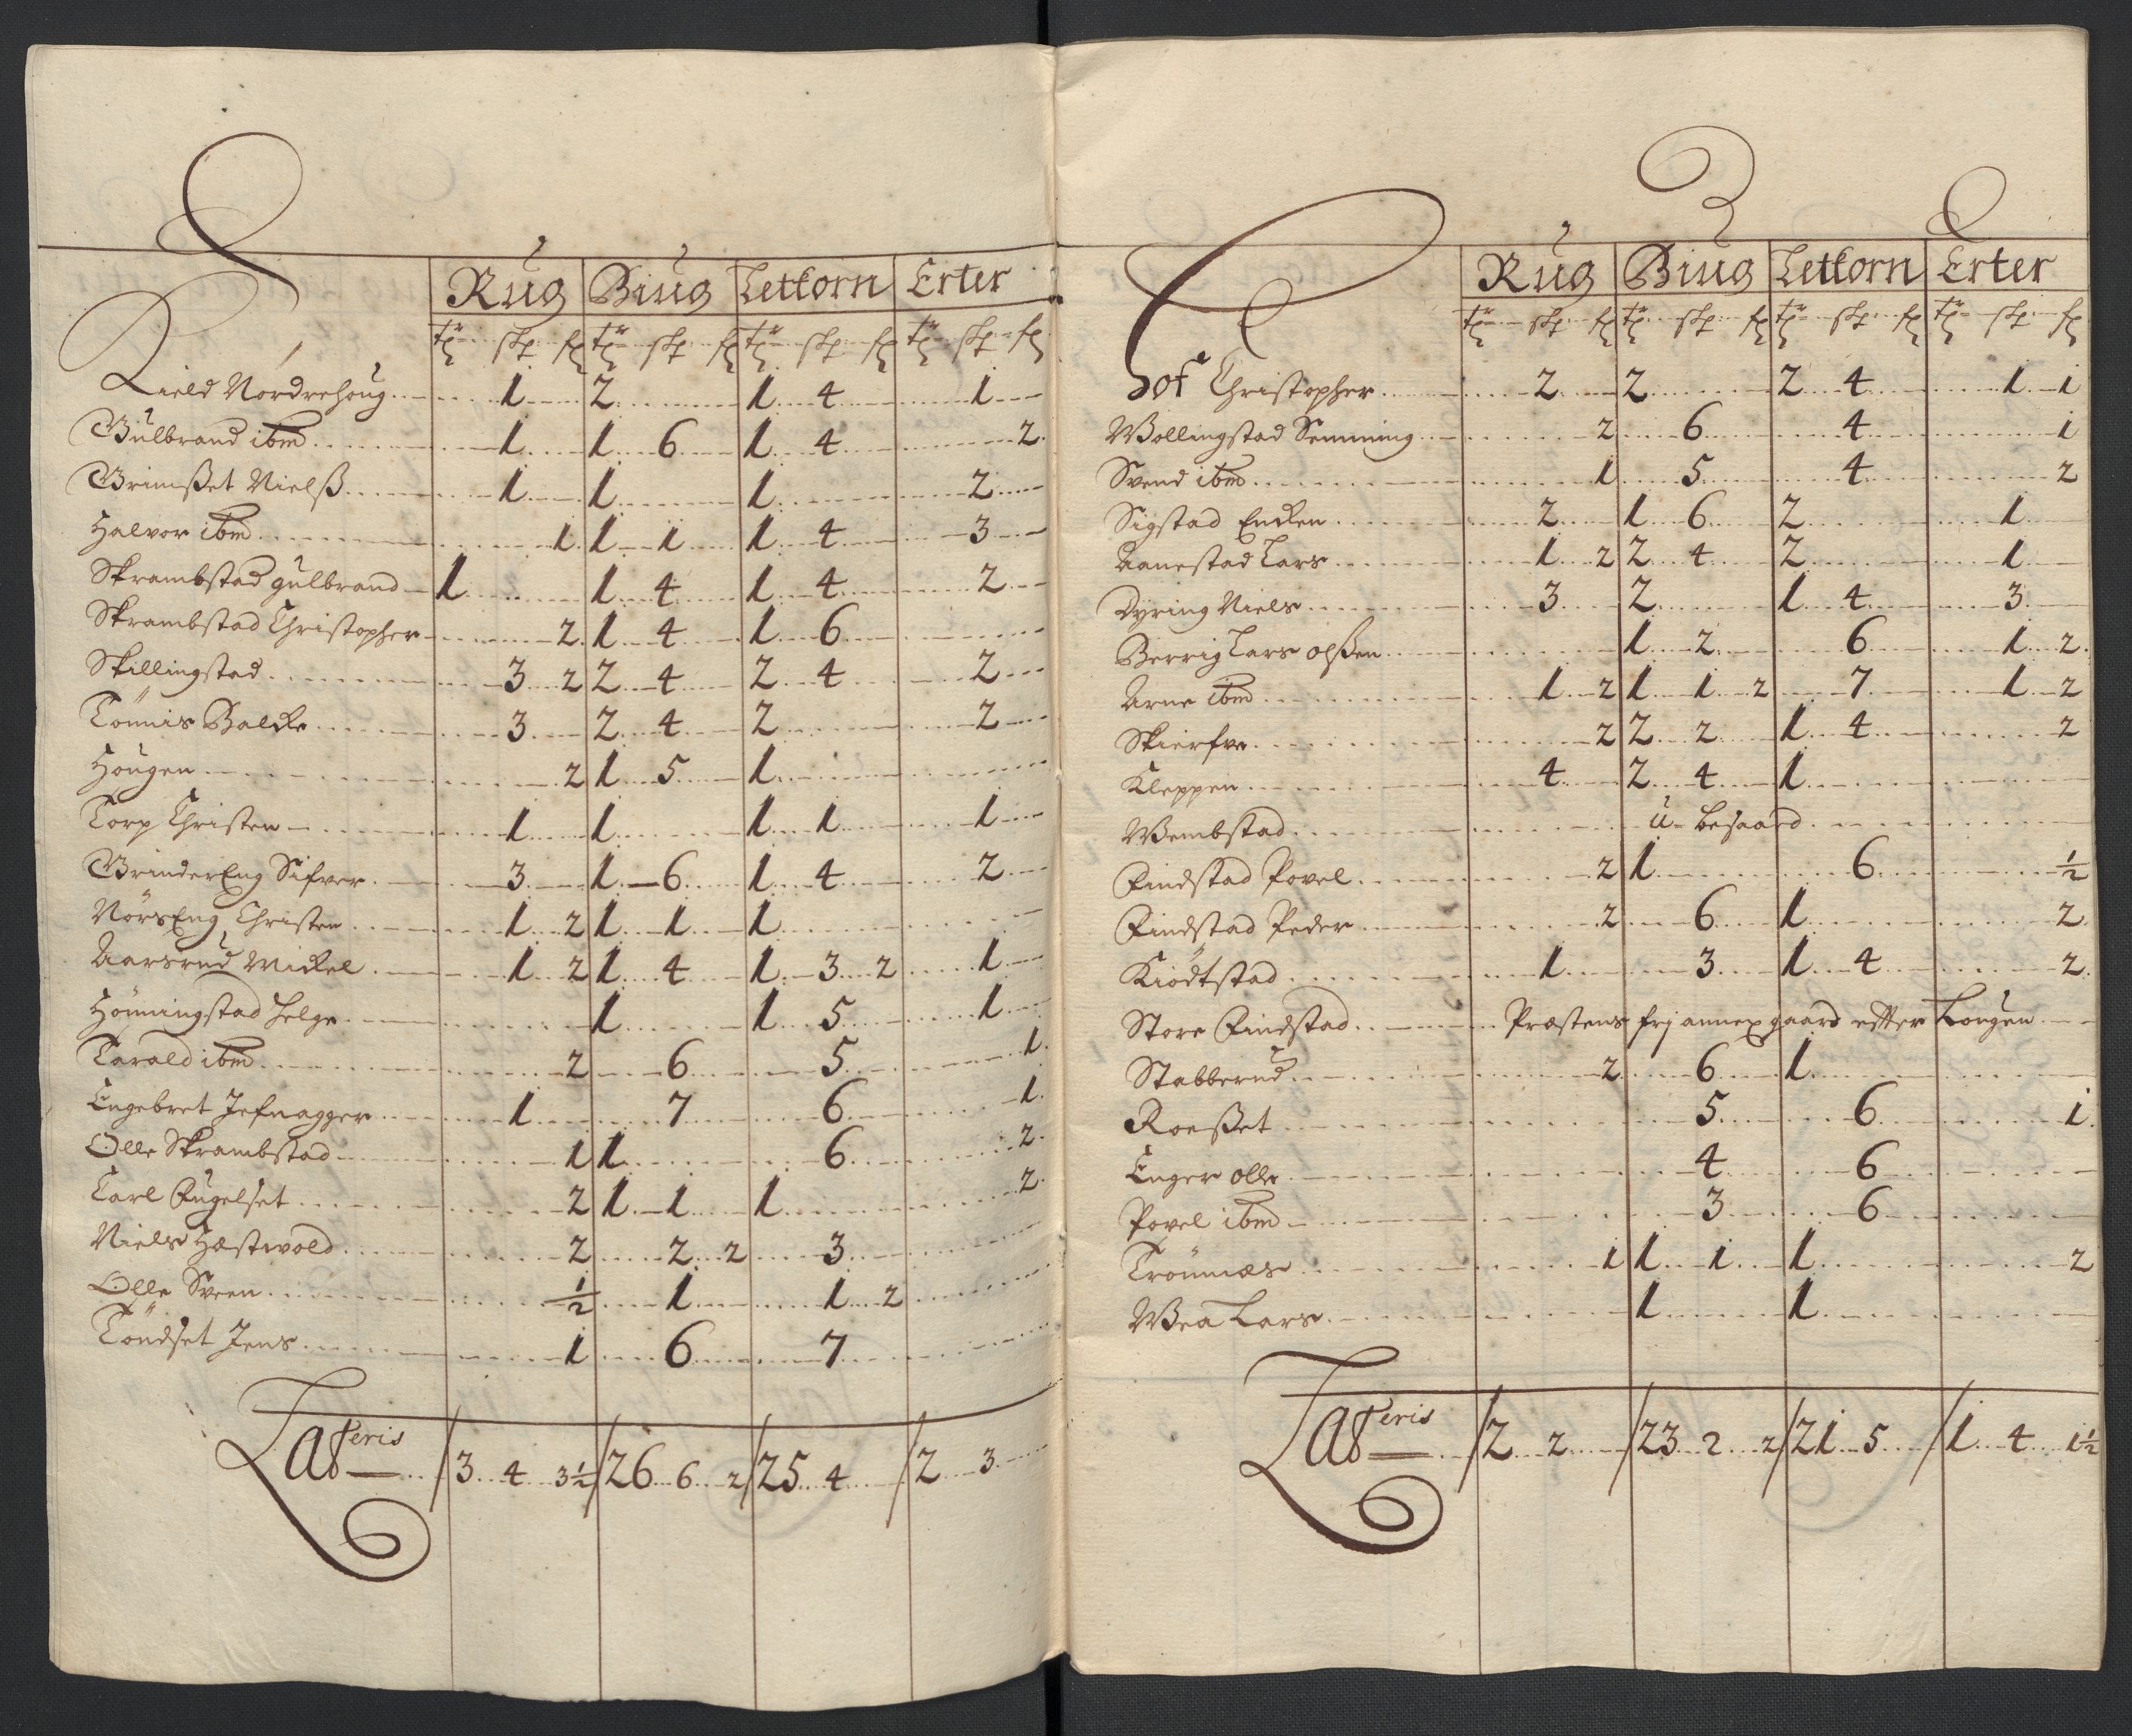 Rug Biug Lettkorn Erter
tr skp fj tr skp fj tr skp fj tr skp fj
Kield Nordrehoug 1 2 1 4 1
Gulbrand ibm 1 1 6 1 4 2
Grimßet Nielß 1 1 1 2
Halvor ibm 1 1 1 1 4 3
Skrambstad gulbrand 1 1 4 1 4 2
Skrambstad Christopher 2 1 4 1 6
Skillingstad 3 2 2 4 2 4 2
Tönnis Balcke 3 2 4 2 2
Hougen 2 1 5 1
Torp Christen 1 1 1 1 1
GrinderEng Sifver 3 1 6 1 4 2
NörsEng Christen 1 2 1 1 1
Aarsrud Mickel 1 2 1 4 1 3 2 1
Hönningstad Helge 1 1 5 1
Tarald ibm 2 6 5 1
Engebret Jefnagger 1 7 6 1
Olle Skrambstad 1 1 6 2
Carl Fugelset 2 1 1 1 2
Niels Hæstvold 2 2 2 3
Olle Sveen ½ 1 1 2
Töndset Jens 1 6 7
Lateris 3 4 3½ 26 6 2 25 4 2 3
3
Rug Biug Lettkorn Erter
tr skp fj tr skp fj tr skp fj tr skp fj
Hof Christopher 2 2 2 4 1 1
Wollingstad Semming 2 6 4 1
Svend ibm 1 5 4 2
Sigstad Encken 2 1 6 2 1
Aanestad Lars 1 2 2 4 2 1
Dyring Niels 3 2 1 4 3
Berrig Lars olßen 1 2 6 1 2
Arne ibm 1 2 1 1 2 7 1 2
Skierfve 2 2 2 1 4 2
Kleppen 4 2 4 1
Wembstad u-besaard
Findstad Povel 2 1 6 ½
Findstad Peder 2 6 1 2
Kiödtstad 1 3 1 4 2
Store Findstad Præstens frj annex gaard efter Lougen
Stabberud 2 6 1
Roeßet 5 6 1
Enger olle 4 6
Povel ibm 3 6
Trönnæs 1 1 1 1 2
Wea Lars 1 1
Lateris 2 2 23 2 2 21 5 1 4 1½